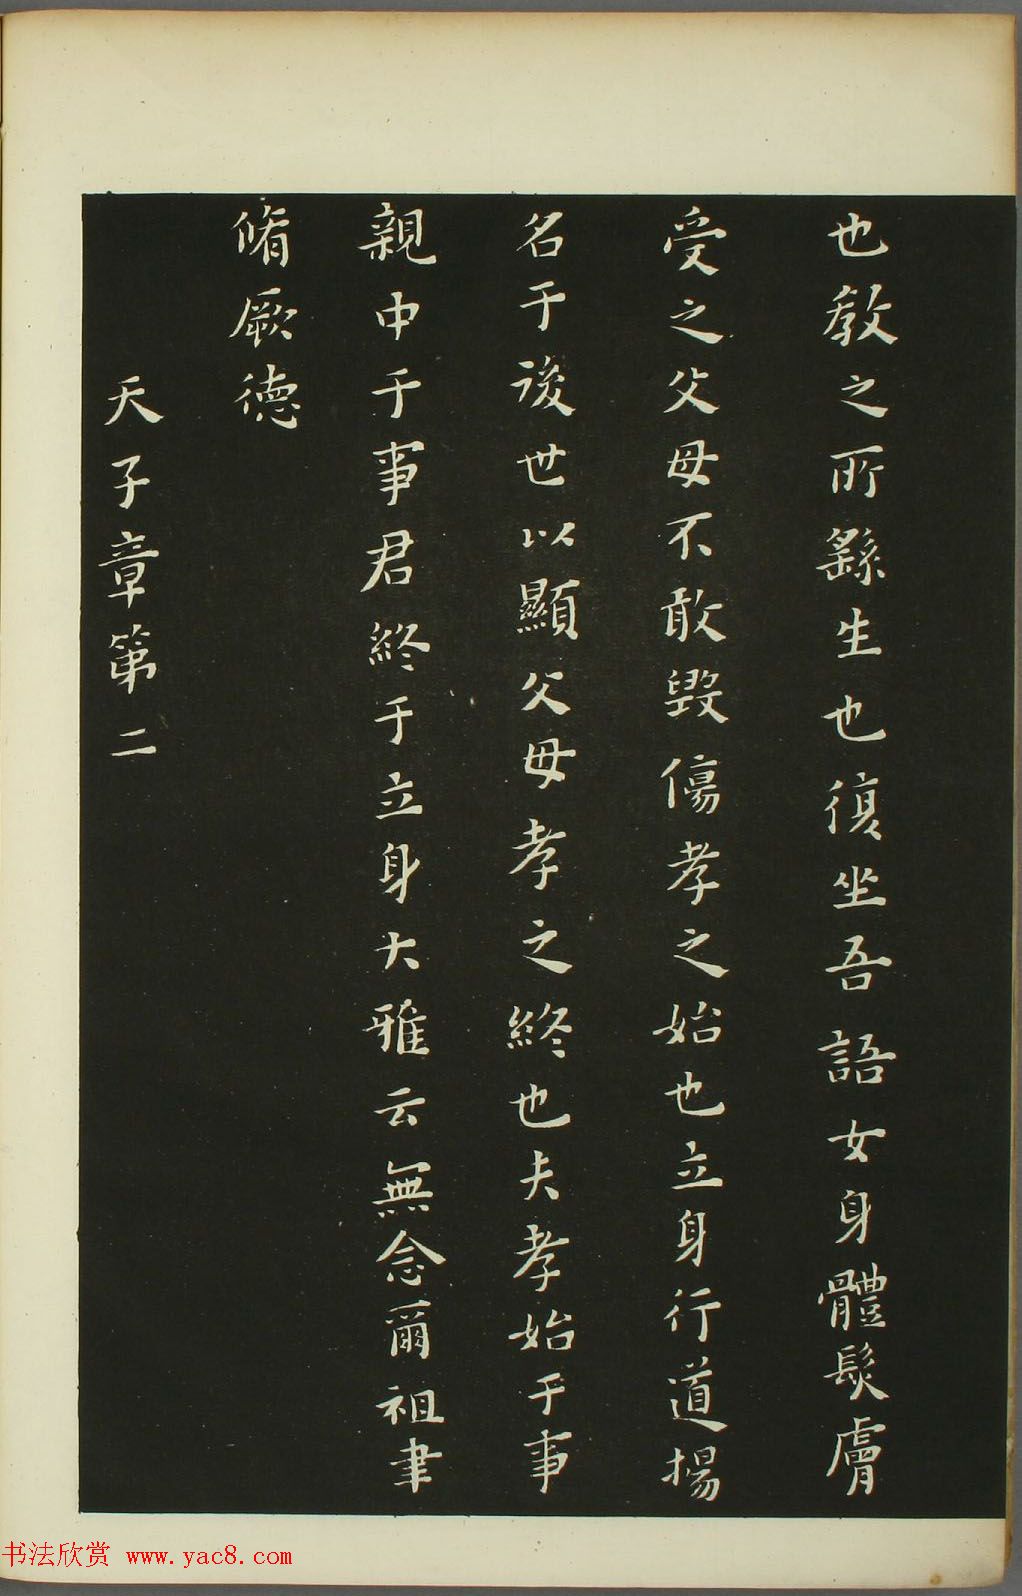 也教之所繇生也復坐吾語女身體髮膚
受之父母不敢毀傷孝之始也立身行道揚
名于後世以顯父母孝之終也夫孝始于事
親中于事君終于立身大雅云無念爾祖聿
脩厥德
天子章第二
书法欣赏 www.yac8.com